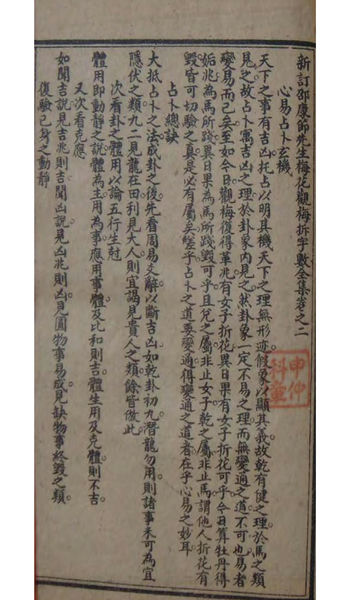 新訂邵康節先生梅花觀梅拆字數全集卷之二
心易占卜玄機
天下之事有吉凶托占以明其機天下之理無形迹假象以顯其義故乾有健之理於馬之類
見之故占卜寓吉凶之理於卦象內見之然卦象一定不易之理而無變通之道不可也易者
變易而已矣至如今日觀梅復得革兆有女子折花異日果有女子折花可乎今日算牡丹得
姤兆為馬所踐異日果為馬所踐毀可乎且兌之屬非止女子乾之屬非止馬謂他人折花有
毀皆可切驗之真是必有屬矣嗟乎占卜之道要變通得變通之道者在乎心易之妙耳
占卜總訣
大抵占卜之法成卦之後先看周易爻辭以斷吉凶如乾卦初九潛龍勿用則諸事未可為宜
隱伏之類九二見龍在田利見大人則宜謁見貴人之類餘皆倣此
次看卦之體用以論五行生尅
體用即動靜之說體為主用為事應用事體及比和則吉體生用及克體則不吉
又次看克應
如聞吉說見吉兆則吉聞凶說見凶兆則凶見圓物事易成見缺物事終毀之類
復驗已身之動靜
申仲